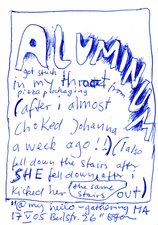 ALUMINIUM
got stuck
in my throat from
pizza packaging
(after i almost
choked Johanna
a week ago!!) (i also
fell down the stairs after
SHE fell down after i
kicked her (the same stairs) out)
@ my hello-gathering MA
17 V 05